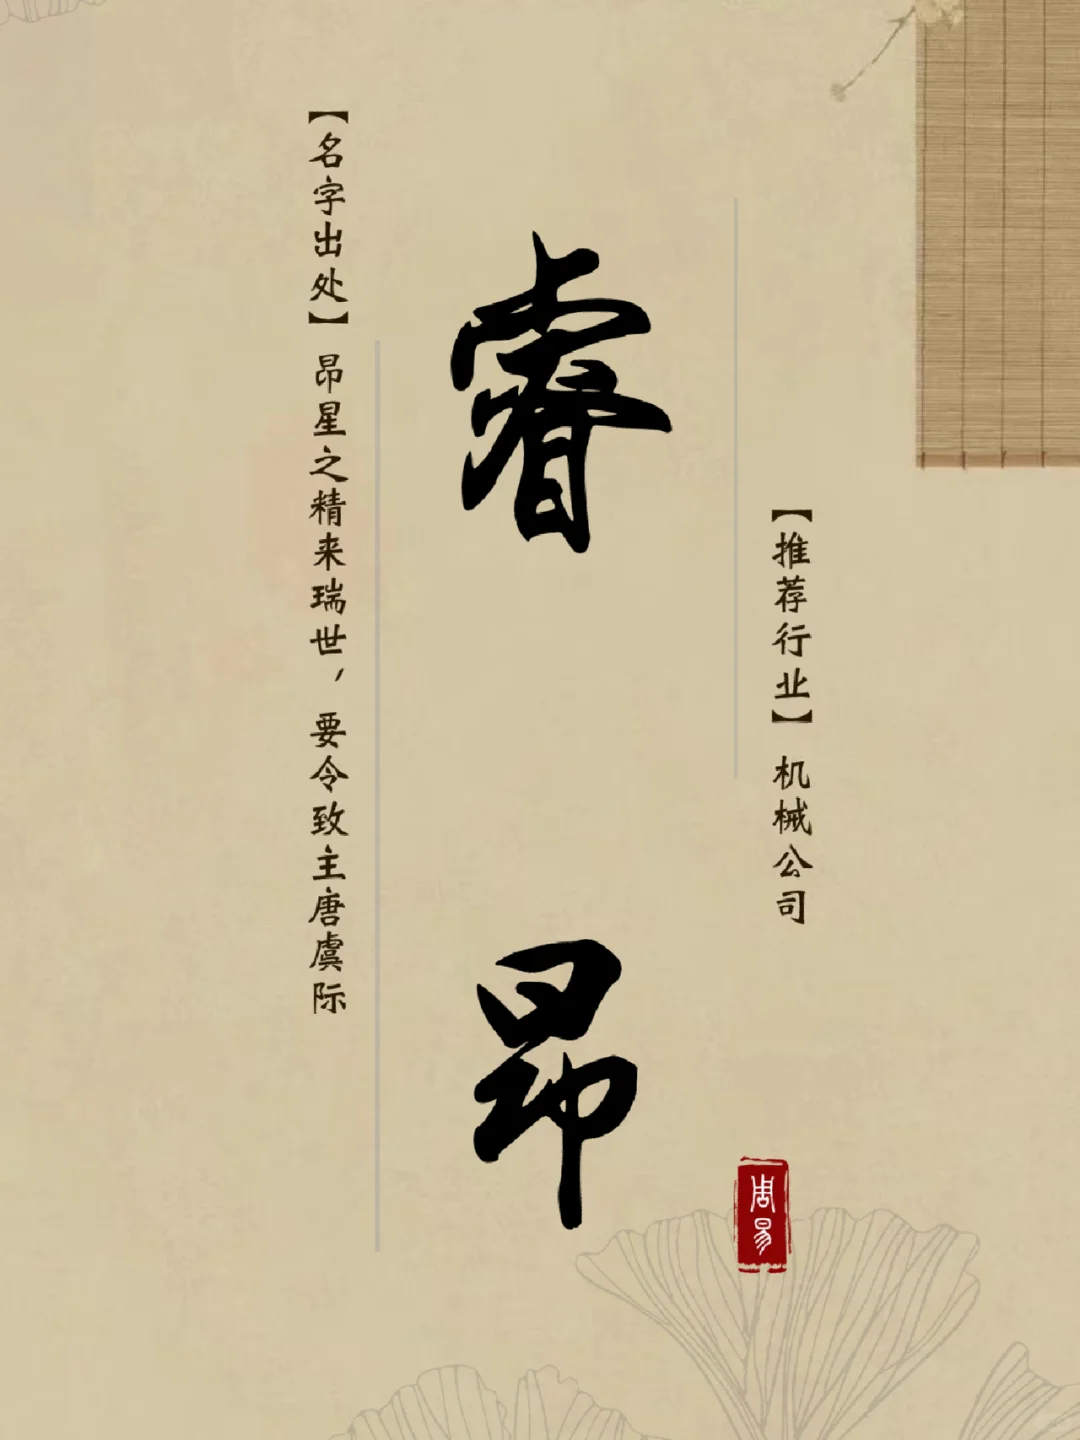 【推荐行业】机械公司
睿昂
【名字出处】昂星之精来瑞世，要令致主唐虞际
周易